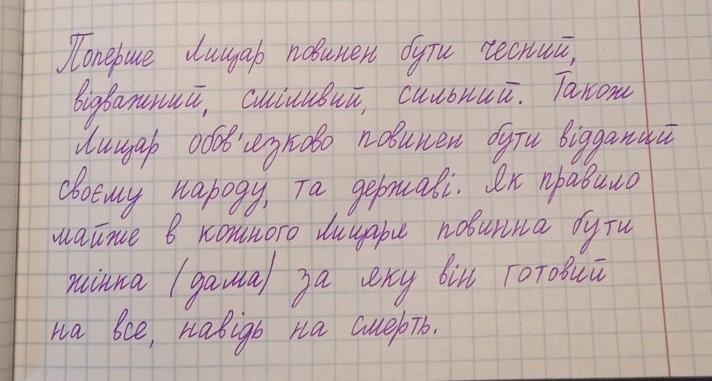 Поперше Лицар повинен бути чесний,
відважний, сміливий, сильний. Також
Лицар обов'язково повинен бути відданий
своєму народу, та державі. Як правило
майже в кожного Лицаря повинна бути
жінка (дама) за яку він готовий
на все, навідь на смерть.